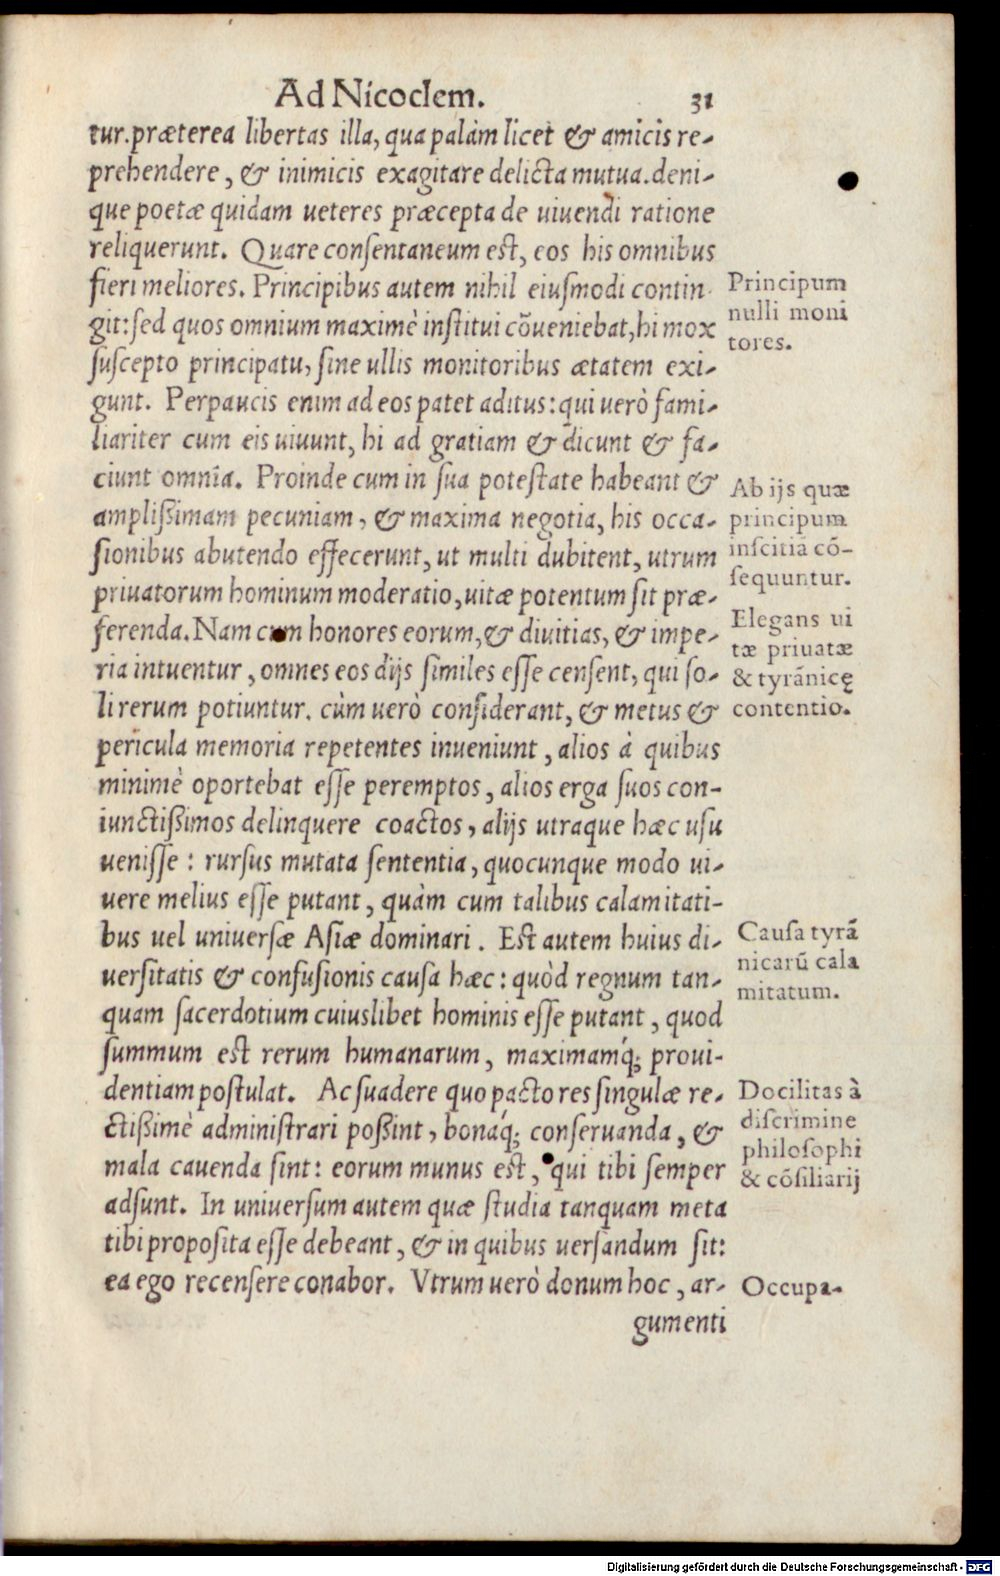 Ad Nicoclem. 31
tur. præterea libertas illa, qua palàm licet & amicis re-
prehendere, & inimicis exagitare delicta mutua. deni-
que poetæ quidam ueteres præcepta de uiuendi ratione
reliquerunt. Quare consentaneum est, eos his omnibus
fieri meliores. Principibus autem nihil eiusmodi contin
git: sed quos omnium maximè institui cõueniebat, hi mox
suscepto principatu, sine ullis monitoribus ætatem exi-
gunt. Perpaucis enim ad eos patet aditus: qui uerò fami-
liariter cum eis uiuunt, hi ad gratiam & dicunt & fa-
ciunt omnia. Proinde cum in sua potestate habeant &
amplißimam pecuniam, & maxima negotia, his occa-
sionibus abutendo effecerunt, ut multi dubitent, utrum
priuatorum hominum moderatio, uitæ potentum sit præ-
ferenda. Nam cum honores eorum, & diuitias, & impe-
ria intuentur, omnes eos dijs similes esse censent, qui so-
li rerum potiuntur. cùm uerò considerant, & metus &
pericula memoria repetentes inueniunt, alios à quibus
minimè oportebat esse peremptos, alios erga suos con-
iunctißimos delinquere coactos, alijs utraque hæc usu
uenisse: rursus mutata sententia, quocunque modo ui-
uere melius esse putant, quàm cum talibus calamitati-
bus uel uniuersæ Asiæ dominari. Est autem huius di-
uersitatis & confusionis causa hæc: quòd regnum tan-
quam sacerdotium cuiuslibet hominis esse putant, quod
summum est rerum humanarum, maximamq́; proui-
dentiam postulat. Ac suadere quo pacto res singulæ re-
ctißimè administrari poßint, bonaq́; conseruanda, &
mala cauenda sint: eorum munus est, qui tibi semper
adsunt. In uniuersum autem quæ studia tanquam meta
tibi proposita esse debeant, & in quibus uersandum sit:
ea ego recensere conabor. Vtrum uerò donum hoc, ar-
gumenti
Principum
nulli moni
tores.
Ab ijs quæ
principum
inscitiã cõ-
sequuntur.
Elegans ui
tæ priuatæ
& tyrãnicę
contentio.
Causa tyrã
nicarũ cala
mitatum.
Docilitas à
discrimine
philosophi
& cõsiliarij
Occupa-
Digitalisierung gefördert durch die Deutsche Forschungsgemeinschaft - DFG